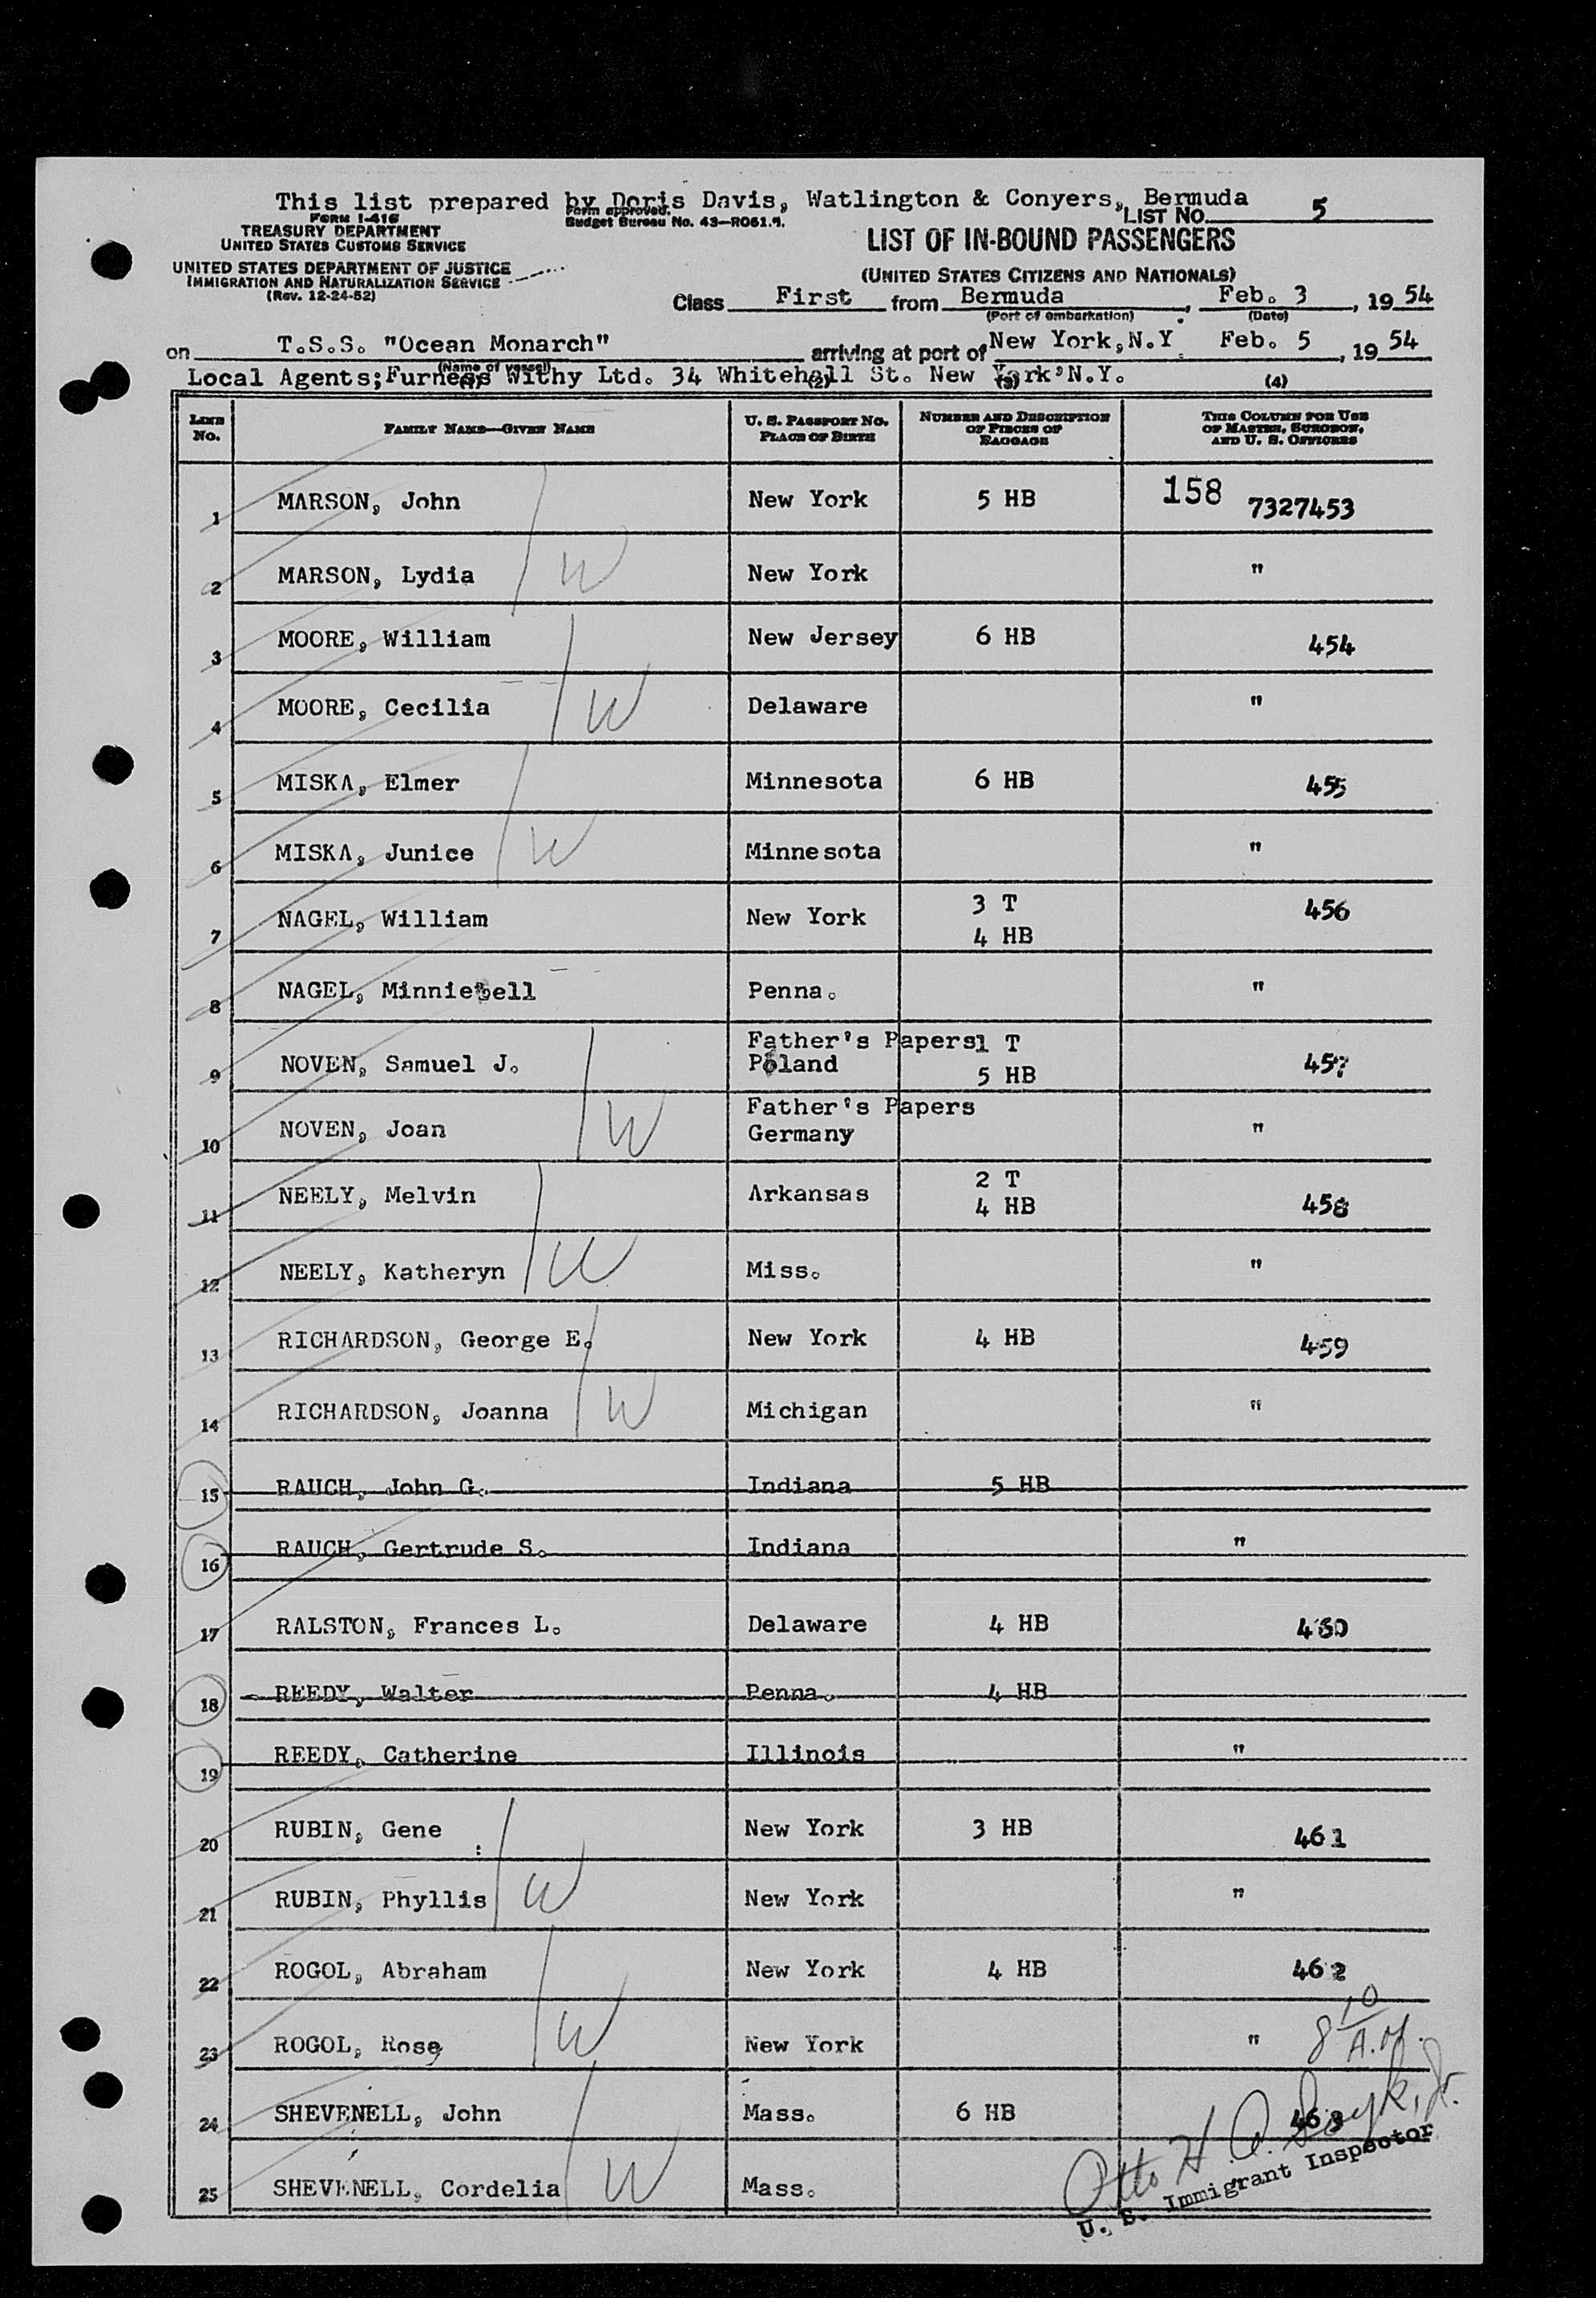 This list prepared by Doris Davis, Watlington & Conyers, Bermuda
FORM I-416
Form approved.
Budget Bureau No. 43—R061.1.
LIST NO. 5
TREASURY DEPARTMENT
UNITED STATES CUSTOMS SERVICE
LIST OF IN-BOUND PASSENGERS
UNITED STATES DEPARTMENT OF JUSTICE
IMMIGRATION AND NATURALIZATION SERVICE
(Rev. 12-24-52)
(UNITED STATES CITIZENS AND NATIONALS)
Class First from Bermuda, Feb. 3, 1954
(Port of embarkation) (Date)
on T.S.S. "Ocean Monarch" arriving at port of New York,N.Y. Feb. 5, 1954
(Name of vessel)
Local Agents;Furness Withy Ltd. 34 Whitehall St. New York,N.Y.
(1) (2) (3) (4)
LINE No. FAMILY NAME—GIVEN NAME U. S. PASSPORT NO. PLACE OF BIRTH NUMBER AND DESCRIPTION OF PIECES OF BAGGAGE THIS COLUMN FOR USE OF MASTER, SURGEON, AND U. S. OFFICERS
1 MARSON, John New York 5 HB 158 7327453
2 MARSON, Lydia W New York "
3 MOORE, William New Jersey 6 HB 454
4 MOORE, Cecilia W Delaware "
5 MISKA, Elmer Minnesota 6 HB 455
6 MISKA, Junice W Minnesota "
7 NAGEL, William New York 3 T 4 HB 456
8 NAGEL, Minniebell Penna. "
9 NOVEN, Samuel J. Father's Papers Poland 1 T 5 HB 457
10 NOVEN, Joan W Father's Papers Germany "
11 NEELY, Melvin Arkansas 2 T 4 HB 458
12 NEELY, Katheryn W Miss. "
13 RICHARDSON, George E. New York 4 HB 459
14 RICHARDSON, Joanna W Michigan "
15 RAUCH, John G. Indiana 5 HB
16 RAUCH, Gertrude S. Indiana "
17 RALSTON, Frances L. Delaware 4 HB 460
18 REEDY, Walter Penna. 4 HB
19 REEDY, Catherine Illinois "
20 RUBIN, Gene New York 3 HB 461
21 RUBIN, Phyllis W New York "
22 ROGOL, Abraham New York 4 HB 462
23 ROGOL, Rose W New York " 8 10 A.M.
24 SHEVENELL, John Mass. 6 HB 463
25 SHEVENELL, Cordelia W Mass.
Otto H.
U. S. Immigrant Inspector